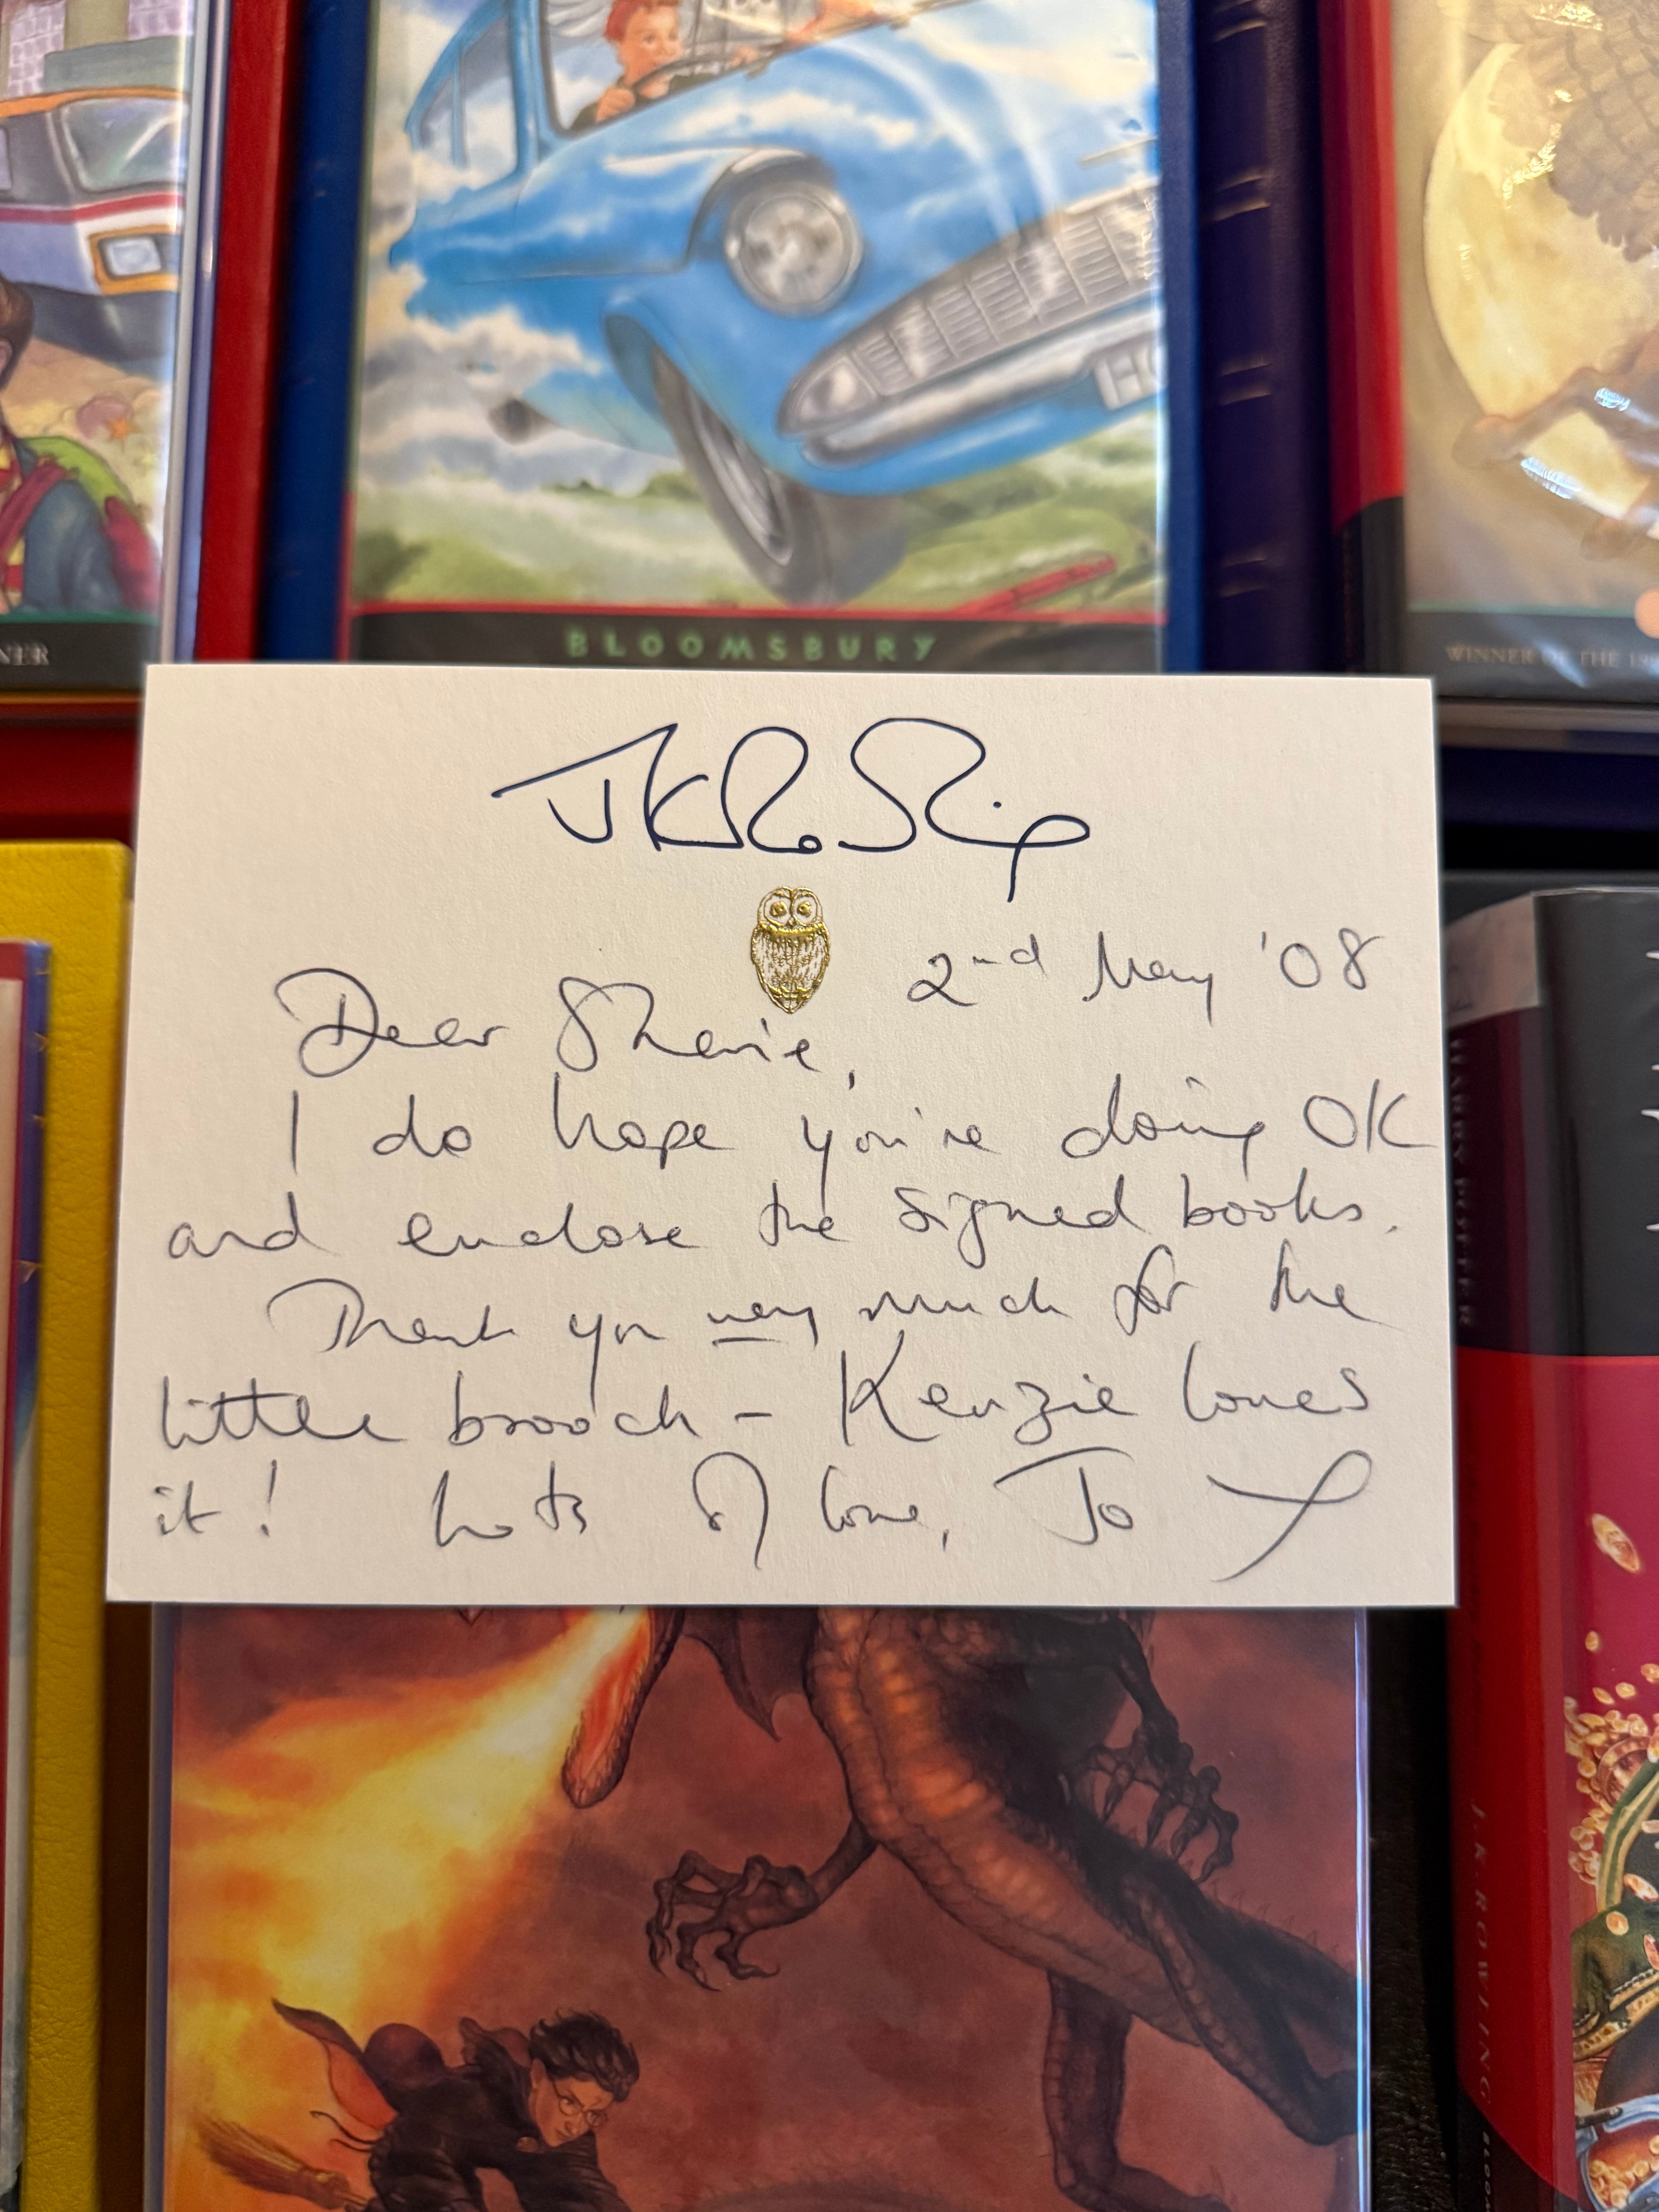 NER
BLOOMSBURY
WINNER OF THE 19
JKRowling
2nd May '08
Dear Sherie,
I do hope you're doing OK
and enclose the signed books.
Thank you very much for the
little brooch – Kenzie loves
it! Lots of love, Jo x
HARRY POTTER
J.K.ROWLING